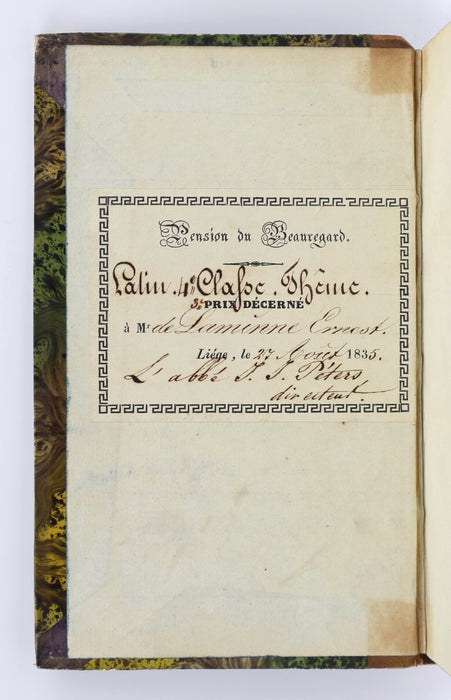 Pension du Beauregard.
Latin. 4e Classe. Thême.
3e PRIX DÉCERNÉ
à Mr. de Laminne Ernest.
Liége, le 27 Août 1835.
L'abbé J. J. Péters
directeur.